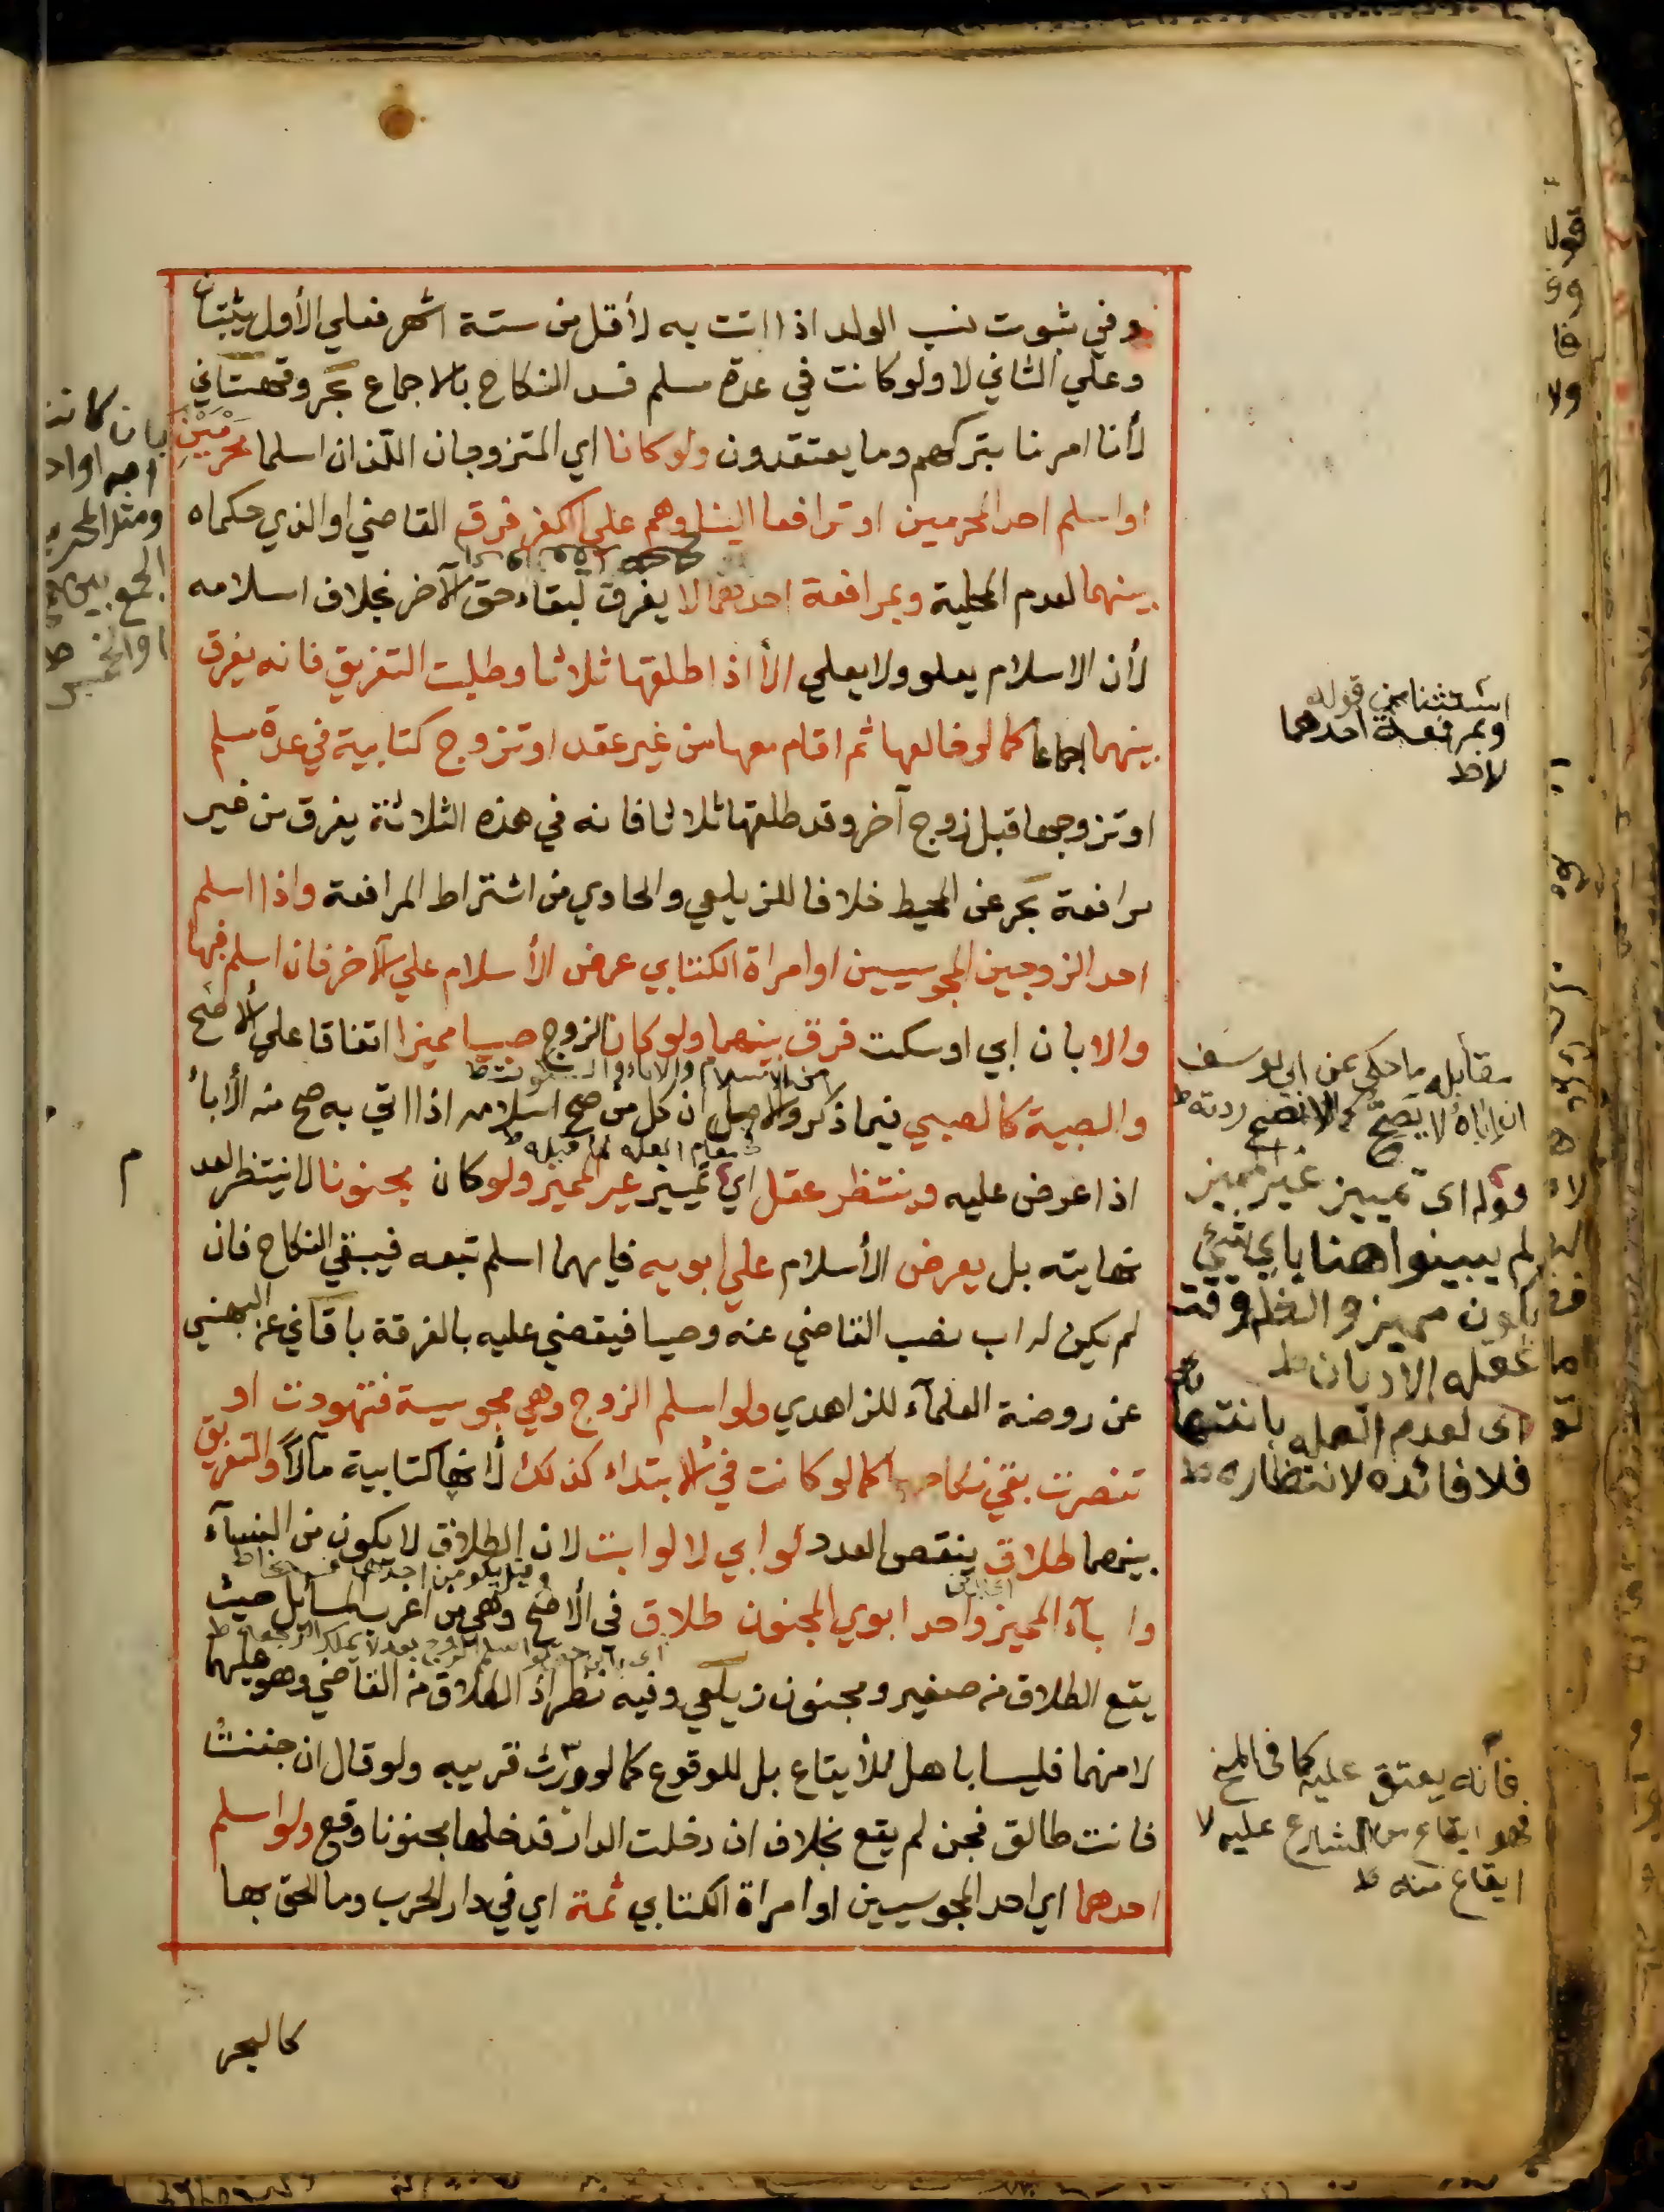 وفي ثبوت نسب الولد اذا اتت به لأقل من ستة اشهر فعلي الأول يثبتان
وعلي الثاني لا ولو كانت في عدة مسلم فسد النكاح بالاجماع بحر وقهستاني
لأنا امرنا بتركهم وما يعتقدون ولو كانا اي المتزوجان اللذان اسلما محرمين
او اسلم احد المحرمين او ترافعا الينا وهم علي الكفر فرق القاضي او الذي حكماه
بينهما لعدم المحلية وبمرافعة احدهما لا يفرق لبقاء حق الآخر بخلاف اسلامه
لأن الاسلام يعلو ولا يعلي الا اذا طلقها ثلاثا وطلبت التفريق فانه يفرق
بينهما اجماعا كما لو خالعها ثم اقام معها من غير عقد او تزوج كتابية في عدة مسلم
او تزوجها قبل زوج آخر وقد طلقها ثلاثا فانه في هذه الثلاثة يفرق من غير
مرافعة بحر عن المحيط خلافا للزيلعي والحاوي من اشتراط المرافعة واذا اسلم
احد الزوجين المجوسيين او امراة الكتابي عرض الأسلام علي الآخر فان اسلم فبها
والا بان ابي او سكت فرق بينهما ولو كان الزوج صبيا مميزا اتفاقا علي الأصح
من الاسلام والاباء والسكوت ط
والصبية كالصبي فيما ذكر والاصل ان كل من صح اسلامه اذا اتي به صح منه الأباء
اذا عرض عليه وينتظر عقل اي تمييز غير المميز ولو كان مجنونا لا ينتظر لعدم
نهايته بل يعرض الأسلام علي ابويه فايهما اسلم تبعه فيبقي النكاح فان
لم يكن له اب نصب القاضي عنه وصيا فيقضي عليه بالفرقة باقاني عن البهنسي
عن روضة العلمآء للزاهدي ولو اسلم الزوج وهي مجوسية فتهودت او
تنصرت بقي نكاحهما كما لو كانت في الابتداء كذلك لأنها كتابية مآلاً والتفريق
بينهما طلاق ينقص العدد لو ابي لا لو ابت لان الطلاق لا يكون من النسآء
وابآء المميز واحد ابوي المجنون طلاق في الأصح وهي من اغرب المسائل حيث
يقع الطلاق من صغير ومجنون زيلعي وفيه نظر اذ الطلاق من القاضي وهو عليهما
لا منهما فليسا باهل للأيقاع بل للوقوع كما لو ورث قريبه ولو قال ان جننت
فانت طالق فجن لم يقع بخلاف ان دخلت الدار فدخلها مجنونا وقع ولو اسلم
احدهما اي احد المجوسيين او امراة الكتابي ثمة اي في دار الحرب وما الحق بها
كالبحر
استثنا من قوله
وبمرفعة احدهما
لا ط
مقابله ما حكي عن ابي يوسف
ان اباه لا يصح كما لا تصح ردته ط
قوله اي تمييز غير المميز
لم يبينوا هنا باي شيئ
يكون مميز والظ وقت
عقله الاديان ط
اي لعدم العلم بانتهائه
فلا فائده لانتظاره ط
فانه يعتق عليه كما في المنح
فهو ايقاع من الشارع عليه لا
ايقاع منه ط
بان كانت